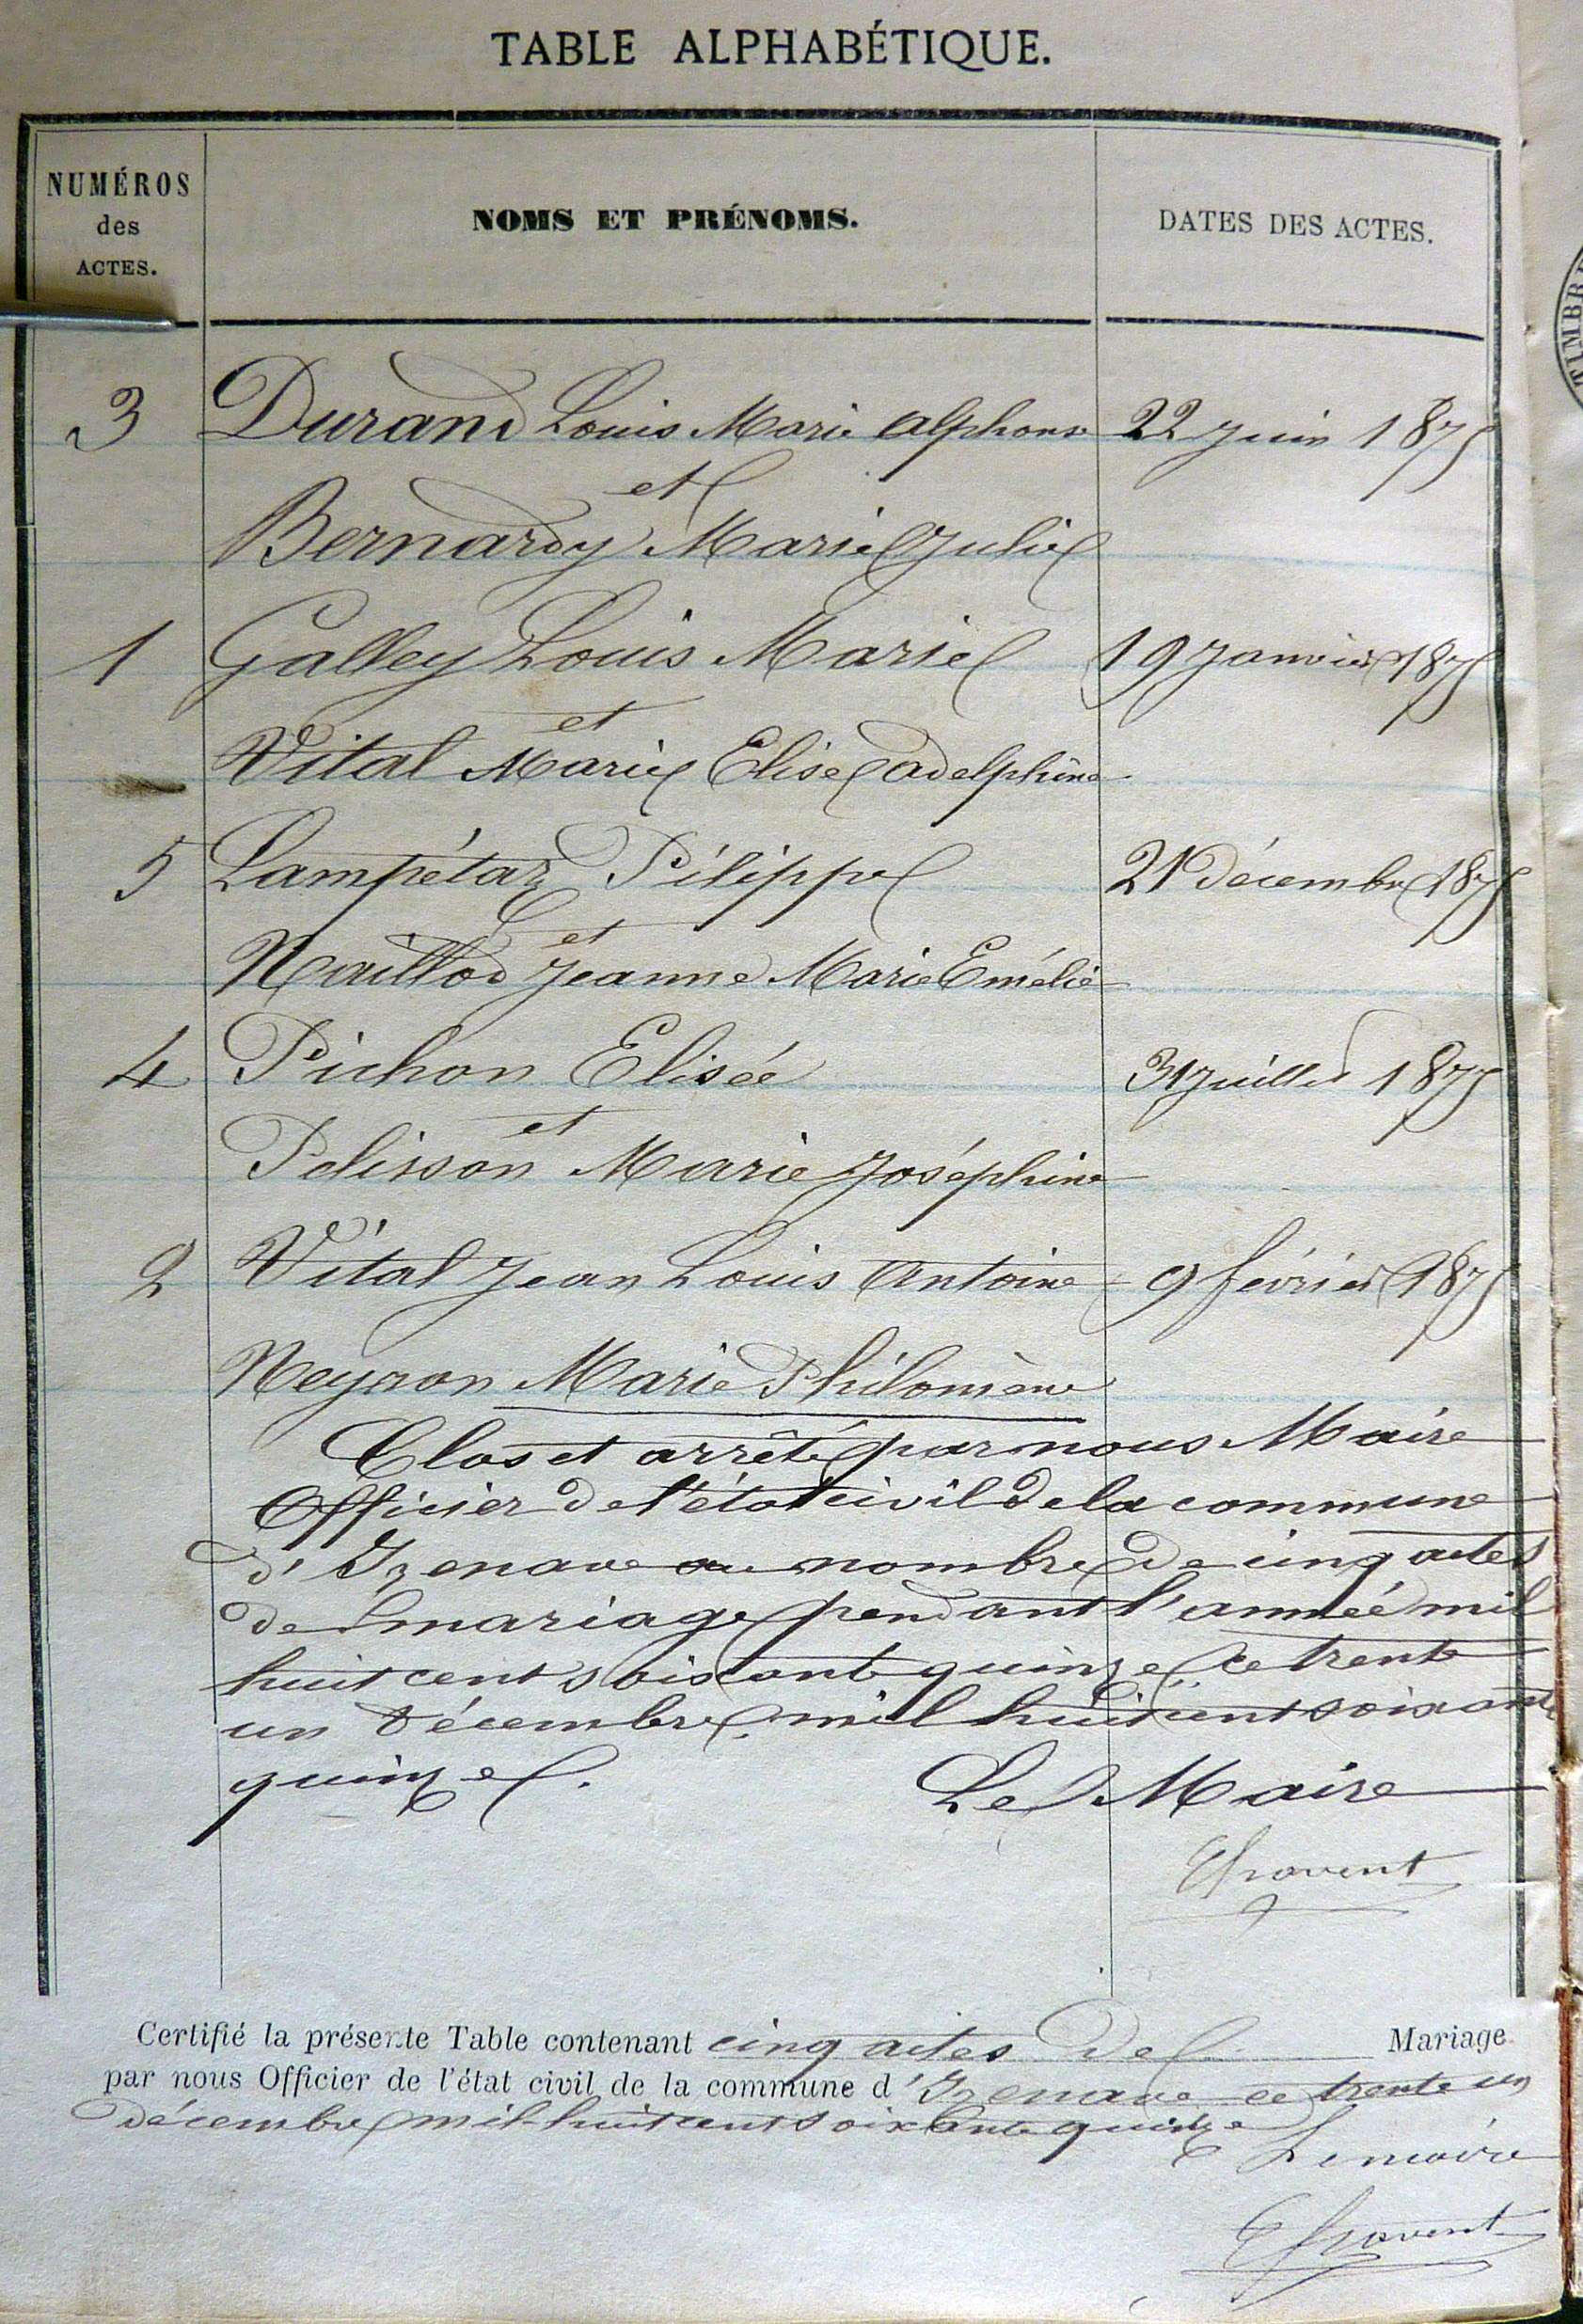 TABLE ALPHABÉTIQUE.
NUMÉROS
des
ACTES.
NOMS ET PRÉNOMS.
DATES DES ACTES.
TIMBRE
3 Durand Louis Marie Alphonse 22 Juin 1875
et
Bernardy Marie Julie
1 Galley Louis Marie 19 Janvier 1875
et
Vital Marie Elise Adelphine
5 Lampétaz Pilippe 21 Décembre 1875
et
Naillod Jeanne Marie Emélie
4 Pichon Elisée 31 Juillet 1875
et
Pelisson Marie Joséphine
2 Vital Jean Louis Antoine 9 février 1875
Neyron Marie Philomène
Clos et arrêté par nous Maire
Officier de l'état civil de la commune
d'Izenave au nombre de cinq actes
de mariage pendant l'année mil
huit cent soixante quinze ce trente
un décembre mil huit cent soixante
quinze.
Le Maire
Certifié la présente Table contenant cinq actes de Mariage
par nous Officier de l'état civil de la commune d'Izenave ce trente un
décembre mil huit cent soixante quinze
Le maire